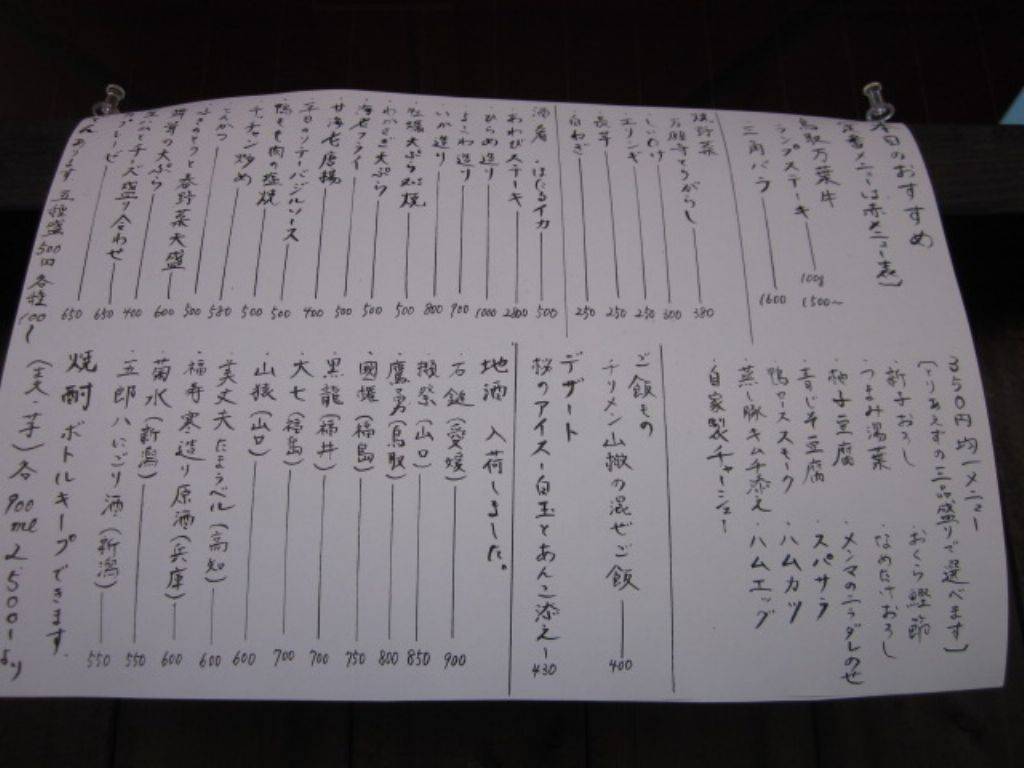 本日のおすすめ
(定番メニューは赤メニュー表)
鳥取万葉牛
ランプステーキ 100g 1500〜
三角バラ 1600
焼野菜 380
万願寺とうがらし 300
しいたけ 250
エリンギ 250
長芋 250
白ねぎ 250
酒肴 ・ほたるイカ 500
あわびステーキ 2800
ひらめ造り 1000
よこわ造り 900
いか造り 800
牡蠣天ぷら 500
わかさぎ天ぷら 500
海老フライ 500
甘海老唐揚 500
バジルソース 400
鴨もも肉の塩焼 500
チャンジャ炒め 500
とんかつ 580
春野菜天盛 500
の天ぷら 600
チーズ盛り合わせ 400
650
650
あります 五種盛 500円 各種100〜
350円均一メニュー
(とりあえずの三品盛りで選べます)
・新子おろし
・つまみ湯葉
・柚子豆腐
・青じそ豆腐
・鴨ローススモーク
・蒸し豚キムチ添え
・自家製チャーシュー
・おくら鰹節
・なめたけおろし
・メンマのニラダレのせ
・スパサラ
・ハムカツ
・ハムエッグ
ご飯もの
チリメン山椒の混ぜご飯 400
デザート
桜のアイス 白玉とあんこ添え 430
地酒 入荷しました。
石鎚(愛媛) 900
獺祭(山口) 850
鷹勇(鳥取) 800
國権(福島) 750
黒龍(福井) 700
大七(福島) 700
山猿(山口) 600
美丈夫 たまラベル(高知) 600
福寿 寒造り原酒(兵庫) 600
菊水(新潟) 550
五郎八にごり酒(新潟) 550
焼酎 ボトルキープできます。
(麦・芋) 各900ml 2,500〜より